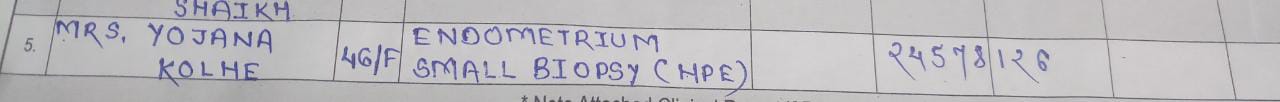 SHAIKH
5. MRS. YOJANA KOLHE 46/F ENDOMETRIUM SMALL BIOPSY (HPE) 24578126